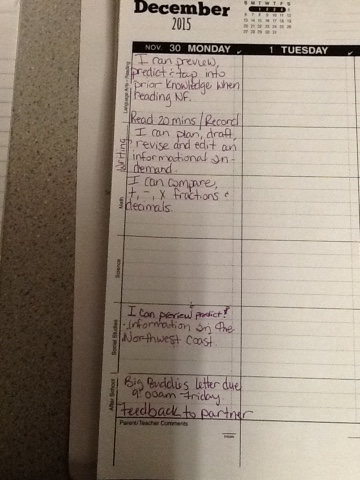 December
2015
S M T W T F S
NOV. 30 MONDAY
1 TUESDAY
Language Arts - Reading
I can preview,
predict & tap into
prior knowledge when
reading NF.
Read 20 mins/Record
Writing
I can plan, draft,
revise and edit an
informational on-
demand.
Math
I can compare,
+, -, x fractions &
decimals.
Science
Social Studies
I can preview & predict
information on the
Northwest Coast.
After School
Big Buddies letter due
9:00am - Friday
Feedback to partner
Parent/Teacher Comments